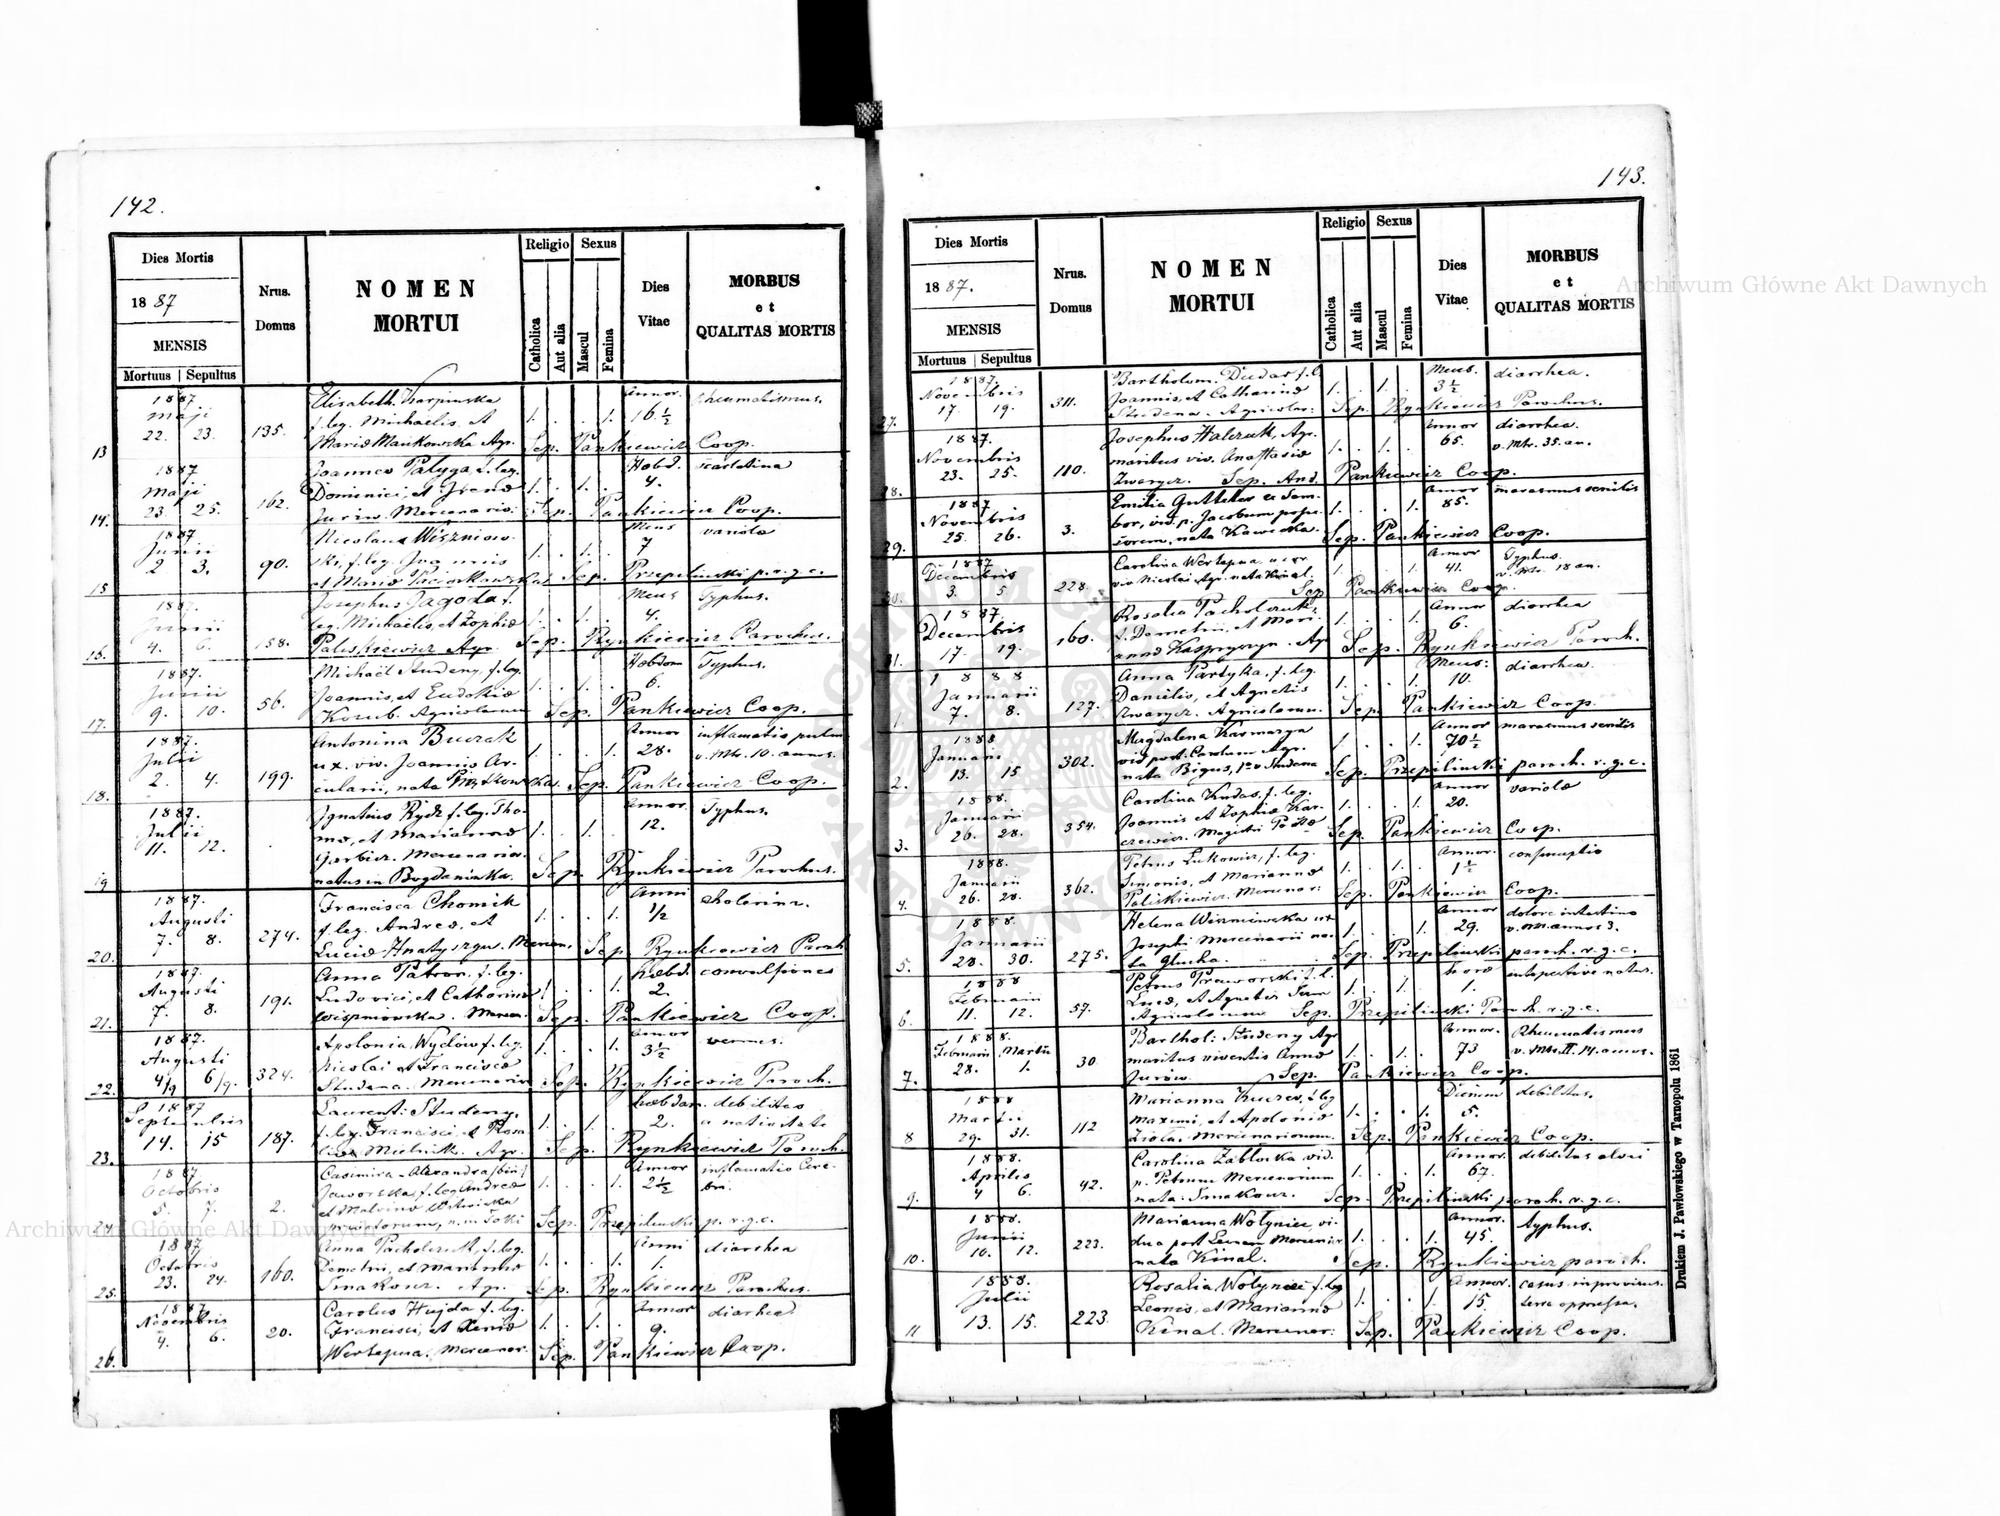 142.
Dies Mortis
18 87
MENSIS
Mortuus | Sepultus
Nrus. Domus
NOMEN MORTUI
Religio
Catholica
Aut alia
Sexus
Mascul
Femina
Dies Vitae
MORBUS et QUALITAS MORTIS
1887 Elisabeth Karpinska Annor. rheumatismus.
Maji f. leg. Michaelis, et 1. 1. 16 1/2
13 22. 23. 135. Mariæ Mankowska Agr. Sep. Pankiewicz Coop.
1887 Joannes Palyga, f. leg. Hebd. scarlatina
Maji Dominici, et Irenæ 1. 1. 4.
14. 23. 25. 162. Juriw. Mercenario: Sep. Pankiewicz Coop.
1887 Nicolaus Wiszniow- Mens variolæ
Junii ski, f. leg. 1. 1. 7
15 2 3. 90. et Mariæ Sep. Przepilinski p. r. g. c.
1887. Josephus Jagoda f. Mens Typhus.
Junii leg. Michaelis, et Zophiæ 1. 1. 4.
16. 4. 6. 158. Paliskiewicz Agr. Sep. Rynkiewicz Parochus.
1887. Michael Studeny, f. leg. Hebdom Typhus.
Junii Joannis, et Eudokiæ 1. 1. 6.
17. 9. 10. 56. Kozub. Agricolarum Sep. Pankiewicz Coop.
1887. Antonina Buczak Annor inflamatio pulm
Julii ux. viv. Joannis Ar- 1. 1. 28. v. Mtr. 10. annos.
18. 2. 4. 199. cularii, nata Sep. Pankiewicz Coop.
1887. Ignatius Rydz f. leg. Tho- Annor. Typhus.
Julii mæ, et Mariannæ 1. 1. 12.
11. 12. Garbicz. Mercenarior.
19 natus in Bogdanówka. Sep. Rynkiewicz Parochus.
1887. Francisca Chomik Anni cholerina.
Augusti f. leg. Andreæ, et 1. 1. 1/2
20. 7. 8. 274. Luciæ Hnatyszyn. Mercen. Sep. Rynkiewicz Paroch
1887. Anna Patron, f. leg. hebd. convulsiones
Augusti Ludovici, et Catharinæ 1. 1. 2.
21. 7. 8. 191. Wiszniowska. Mercen. Sep. Pankiewicz Coop.
1887. Apolonia Wydów f. leg. Annor vermes.
Augusti Nicolai et Franciscæ 1. 1. 3 1/2
22. 4/9 6/9. 324. Studena. Mercenarior Sep. Rynkiewicz Paroch.
1887 Laurent: Studeny, hebdom. debilitas
Septembris f. leg. Francisci, et Rosa 1. 1. 2. a nativitate
23. 14. 15 187. Mielnik. Agr. Sep. Rynkiewicz Paroch.
1887 Casimira-Alexandra Annor inflamatio Cere-
Octobris Jaworska, f. leg. Andreæ 1. 1. 2 1/2 bri.
5. 7. 2. et Malvinæ
24. Sep. Przepilinski p. r. g. c.
1887 Anna Pacholczuk, f. leg. Anni diarrhea
Octobris Demetrii, et Mariannæ 1. 1. 1.
25. 23. 24. 160. Smakouz. Agr. Sep. Rynkiewicz Parochus.
1887. Carolus Hujda f. leg. Annor diarhea
Novembris Francisci, et Xeniæ 1. 1. 9.
26. 4. 6. 20. Wertepna. Mercenar. Sep. Pankiewicz Coop.
143.
Dies Mortis
18 87.
MENSIS
Mortuus | Sepultus
Nrus. Domus
NOMEN MORTUI
Religio
Catholica
Aut alia
Sexus
Mascul
Femina
Dies Vitae
MORBUS et QUALITAS MORTIS
1887. Bartholom. Dudar f. l. Mens. diarrhea.
Novembris Joannis, et Catharinæ 1. 1. 3 1/2
27. 17. 19. 311. Studena. Agricolar: Sep. Rynkiewicz Parochus.
1887. Josephus Halczuk, Agr. Annor diarrhea
Novembris maritus viv. Anastasiæ 1. 1. 65. v. Mtr. 35. an.
28. 23. 25. 110. Zwarycz. Sep. And. Pankiewicz Coop.
1887 Emilia Gutteter de Sam- Annor marasmus senilis
Novembris bor, vid. p. Jacobum 1. 1. 85.
29. 25. 26. 3. nata Kawecka. Sep. Pankiewicz Coop.
1887 Carolina Wertepna, uxor Annor Typhus.
Decembris viv. Nicolai Agr. nata Kinal. 1. 1. 41. v. Mtr. 18 an.
30. 3. 5 228. Sep. Pankiewicz Coop.
1887 Rosalia Pacholczuk, Annor diarrhea
Decembris f. Demetrii, et Mari- 1. 1. 6.
31. 17. 19. 160. annæ Kaspryszyn. Agr Sep. Rynkiewicz Paroch.
1888 Anna Partyka, f. leg. Mens: diarrhea.
Januarii Danielis, et Agnetis 1. 1. 10.
1. 7. 8. 127. Zwarycz. Agricolarum. Sep. Pankiewicz Coop.
1888 Magdalena Karmazyn Annor marasmus senilis
Januarii vid. post. Carolum Agr. 1. 1. 70 1/2
2. 13. 15 302. nata Bigus, 1o v. Studena Sep. Przepilinski paroch. r. g. c.
1888. Carolina Kudas, f. leg. Annor variolæ
Januarii Joannis et Zophiæ Kar- 1. 1. 20.
3. 26. 28. 354. czewicz. Magistri Sep. Pankiewicz Coop.
1888. Petrus Lukowicz, f. leg. Annor. consumptio
Januarii Simonis, et Mariannæ 1. 1. 1 1/2
4. 26. 28. 362. Paliskiewicz. Mercenar: Sep. Pankiewicz Coop.
1888. Helena Wiszniewska ux Annor dolore intestino
Januarii Josephi Mercenarii na- 1. 1. 29. v. M. annos 3.
5. 28. 30. 275. ta Glucha. Sep. Przepilinski paroch. r. g. c.
1888 Petrus Przeworski, f. l. horæ intempestive natus.
Februarii Lucæ, et Agnetis 1. 1. 1.
6. 11. 12. 57. Agricolarum Sep. Przepilinski Paroch. r. g. c.
1888. Barthol: Studeny Agr Annor. Rheumatismus
Februarii Martii maritus viventis Annæ 1. 1. 73 v. Mtr. II. 14. annos.
7. 28. 1. 30. Jurów. Sep. Pankiewicz Coop.
1888 Marianna Kuczer, f. leg Dierum debilitas.
Martii Maximi, et Apoloniæ 1. 1. 5.
8 29. 31. 112 Ziola. Mercenariorum. Sep. Pankiewicz Coop.
1888. Carolina Zablocka vid. Annor. debilitas alvei
Aprilis p. Petrum Mercenarium 1. 1. 67.
9. 4 6. 42. nata: Smakouz. Sep. Przepilinski paroch. r. g. c.
1888. Marianna Wołyniec, vi- Annor. typhus.
Junii dua post Leonem Mercenar 1. 1. 45.
10. 10. 12. 223. nata Kinal. Sep. Rynkiewicz paroch.
1888. Rosalia Wołyniec f. leg Annor. casus improvisus.
Julii Leonis, et Mariannæ 1. 1. 15. terra oppressa.
11 13. 15. 223. Kinal. Mercenar: Sep. Pankiewicz Coop.
Drukiem J. Pawłowskiego w Tarnopolu 1861
Archiwum Główne Akt Dawnych
Archiwum Główne Akt Dawnych
ARCHIWUM GŁÓWNE AKT DAWNYCH